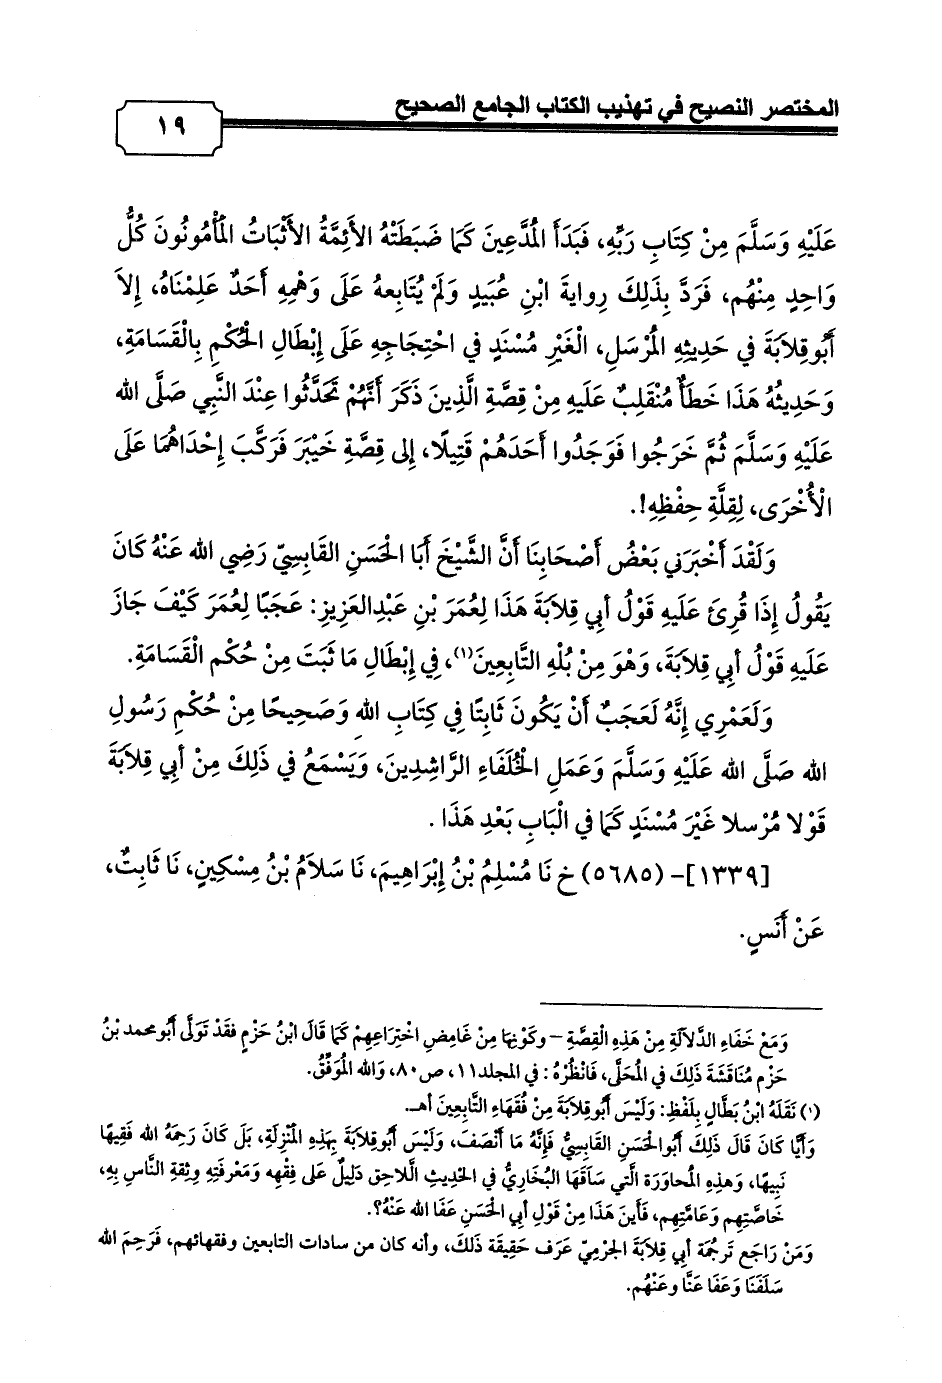 المختصر النصيح في تهذيب الكتاب الجامع الصحيح
١٩
عَلَيْهِ وَسَلَّمَ مِنْ كِتَابِ رَبِّهِ، فَبَدَأَ الْمُدَّعِينَ كَمَا ضَبَطَتْهُ الأَئِمَّةُ الأَثْبَاتُ الْمَأْمُونُونَ كُلُّ
وَاحِدٍ مِنْهُم، فَرَدَّ بِذَلِكَ رِوايةَ ابْنِ عُبَيدٍ وَلَمْ يُتَابِعهُ عَلَى وَهْمِهِ أَحَدٌ عَلِمْنَاهُ، إِلاَ
أَبُو قِلاَبَةَ في حَدِيثِهِ الْمُرْسَلِ، الْغَيْرِ مُسْنَدٍ في احْتِجَاجِهِ عَلَى إِبْطَالِ الْحُكْمِ بِالْقَسَامَةِ،
وَحَدِيثُهُ هَذَا خَطَأٌ مُنْقَلِبٌ عَلَيهِ مِنْ قِصَّةِ الَّذِينَ ذَكَرَ أَنَّهُمْ تَحَدَّثُوا عِنْدَ النَّبِي صَلَّى الله
عَلَيْهِ وَسَلَّمَ ثُمَّ خَرَجُوا فَوَجَدُوا أَحَدَهُمْ قَتِيلًا، إِلى قِصَّةِ خَيْبَرَ فَرَكَّبَ إِحْدَاهُمَا عَلَى
الْأُخْرَى، لِقِلَّةِ حِفْظِهِ!.
وَلَقْدَ أَخْبَرَني بَعْضُ أَصْحَابِنَا أَنَّ الشَّيْخَ أَبَا الْحَسَنِ القَابِسِيّ رَضِي الله عَنْهُ كَانَ
يَقُولُ إِذَا قُرِئَ عَلَيهِ قَوْلُ أبي قِلابَةَ هَذَا لِعُمَرَ بْنِ عَبْدِالعَزِيزِ: عَجَبًا لِعُمَرَ كَيْفَ جَازَ
عَلَيهِ قَوْلُ أبي قِلاَبَةَ، وَهْوَ مِنْ بُلْهِ التَّابِعِينَ(١)، فِي إِبْطَالِ مَا ثَبَتَ مِنْ حُكْم الْقَسَامَةِ.
وَلَعَمْرِي إِنَّهُ لَعَجَبٌ أَنْ يَكُونَ ثَابِتًا فِي كِتَابِ الله وَصَحِيحًا مِنْ حُكْمِ رَسُولِ
الله صَلَّى الله عَلَيْهِ وَسَلَّمَ وَعَمَلِ الْخُلَفَاءِ الرَّاشِدِينَ، وَيَسْمَعُ في ذَلِكَ مِنْ أبي قِلاَبَةَ
قَوْلا مُرْسلا غَيْرَ مُسْنَدٍ كَمَا في الْبَابِ بَعْدِ هَذَا .
[١٣٣٩]- (٥٦٨٥) خ نَا مُسْلِمُ بْنُ إِبْرَاهِيمَ، نَا سَلاَمُ بْنُ مِسْكِينٍ، نَا ثَابِتٌ،
عَنْ أَنَسٍ.
وَمَعْ خَفَاءِ الدَّلاَلَةِ مِنْ هَذِهِ الْقِصَّةِ – وكَوْنِهَا مِنْ غَامِضِ اخْتِرَاعِهِمْ كَمَا قَالَ ابْنُ حَزْمٍ فَقَدْ تَوَلَّى أَبُو محمد بْنُ
حَزْمٍ مُنَاقَشَةَ ذَلِكَ فِي الْمُحَلَّى، فَانْظُرْهُ : في المجلد١١، ص٨٠، وَالله الْمُوَفِّقُ.
(١) نَقَلَهُ ابْنُ بَطَّالٍ بِلَفْظِ: وَلَيْسَ أَبُو قِلاَبَةَ مِنْ فُقَهَاءِ التَّابِعِينَ أهـ.
وَأَيًا كَانَ قَالَ ذَلِكَ أَبُوالْحَسَنِ القَابِسِيُّ فَإِنَّهُ مَا أَنْصَفَ، وَلَيْسَ أَبُوقِلاَبَةَ بِهَذِهِ الْمَنْزِلَةِ، بَلْ كَانَ رَحِمَهُ الله فَقِيهًا
نَبِيهًا، وَهذِهِ الْمُحَاوَرَةُ الَّتي سَاقَهَا البُخَارِيُّ في الحَدِيثِ الَّلاحِقِ دَلِيلٌ عَلى فِقْهِهِ وَمَعْرِفَتِهِ وِثِقَةِ النَّاسِ بِهِ،
خَاصَّتِهِم وَعَامَّتِهِم، فَأَينَ هَذَا مِنْ قَوْلِ أبي الْحَسَنِ عَفَا الله عَنْهُ؟.
وَمَنْ رَاجَع تَرجُمَةَ أبي قِلاَبَةَ الجَرْمِيّ عَرَف حَقِيقَةَ ذَلكَ، وأنه كان من سادات التابعين وفقهائهم، فَرَحِمَ الله
سَلَفَنَا وَعَفَا عَنَّا وعَنْهُم.